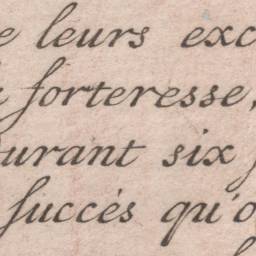 e leurs exc
forteresse,
durant six
succés qu'o